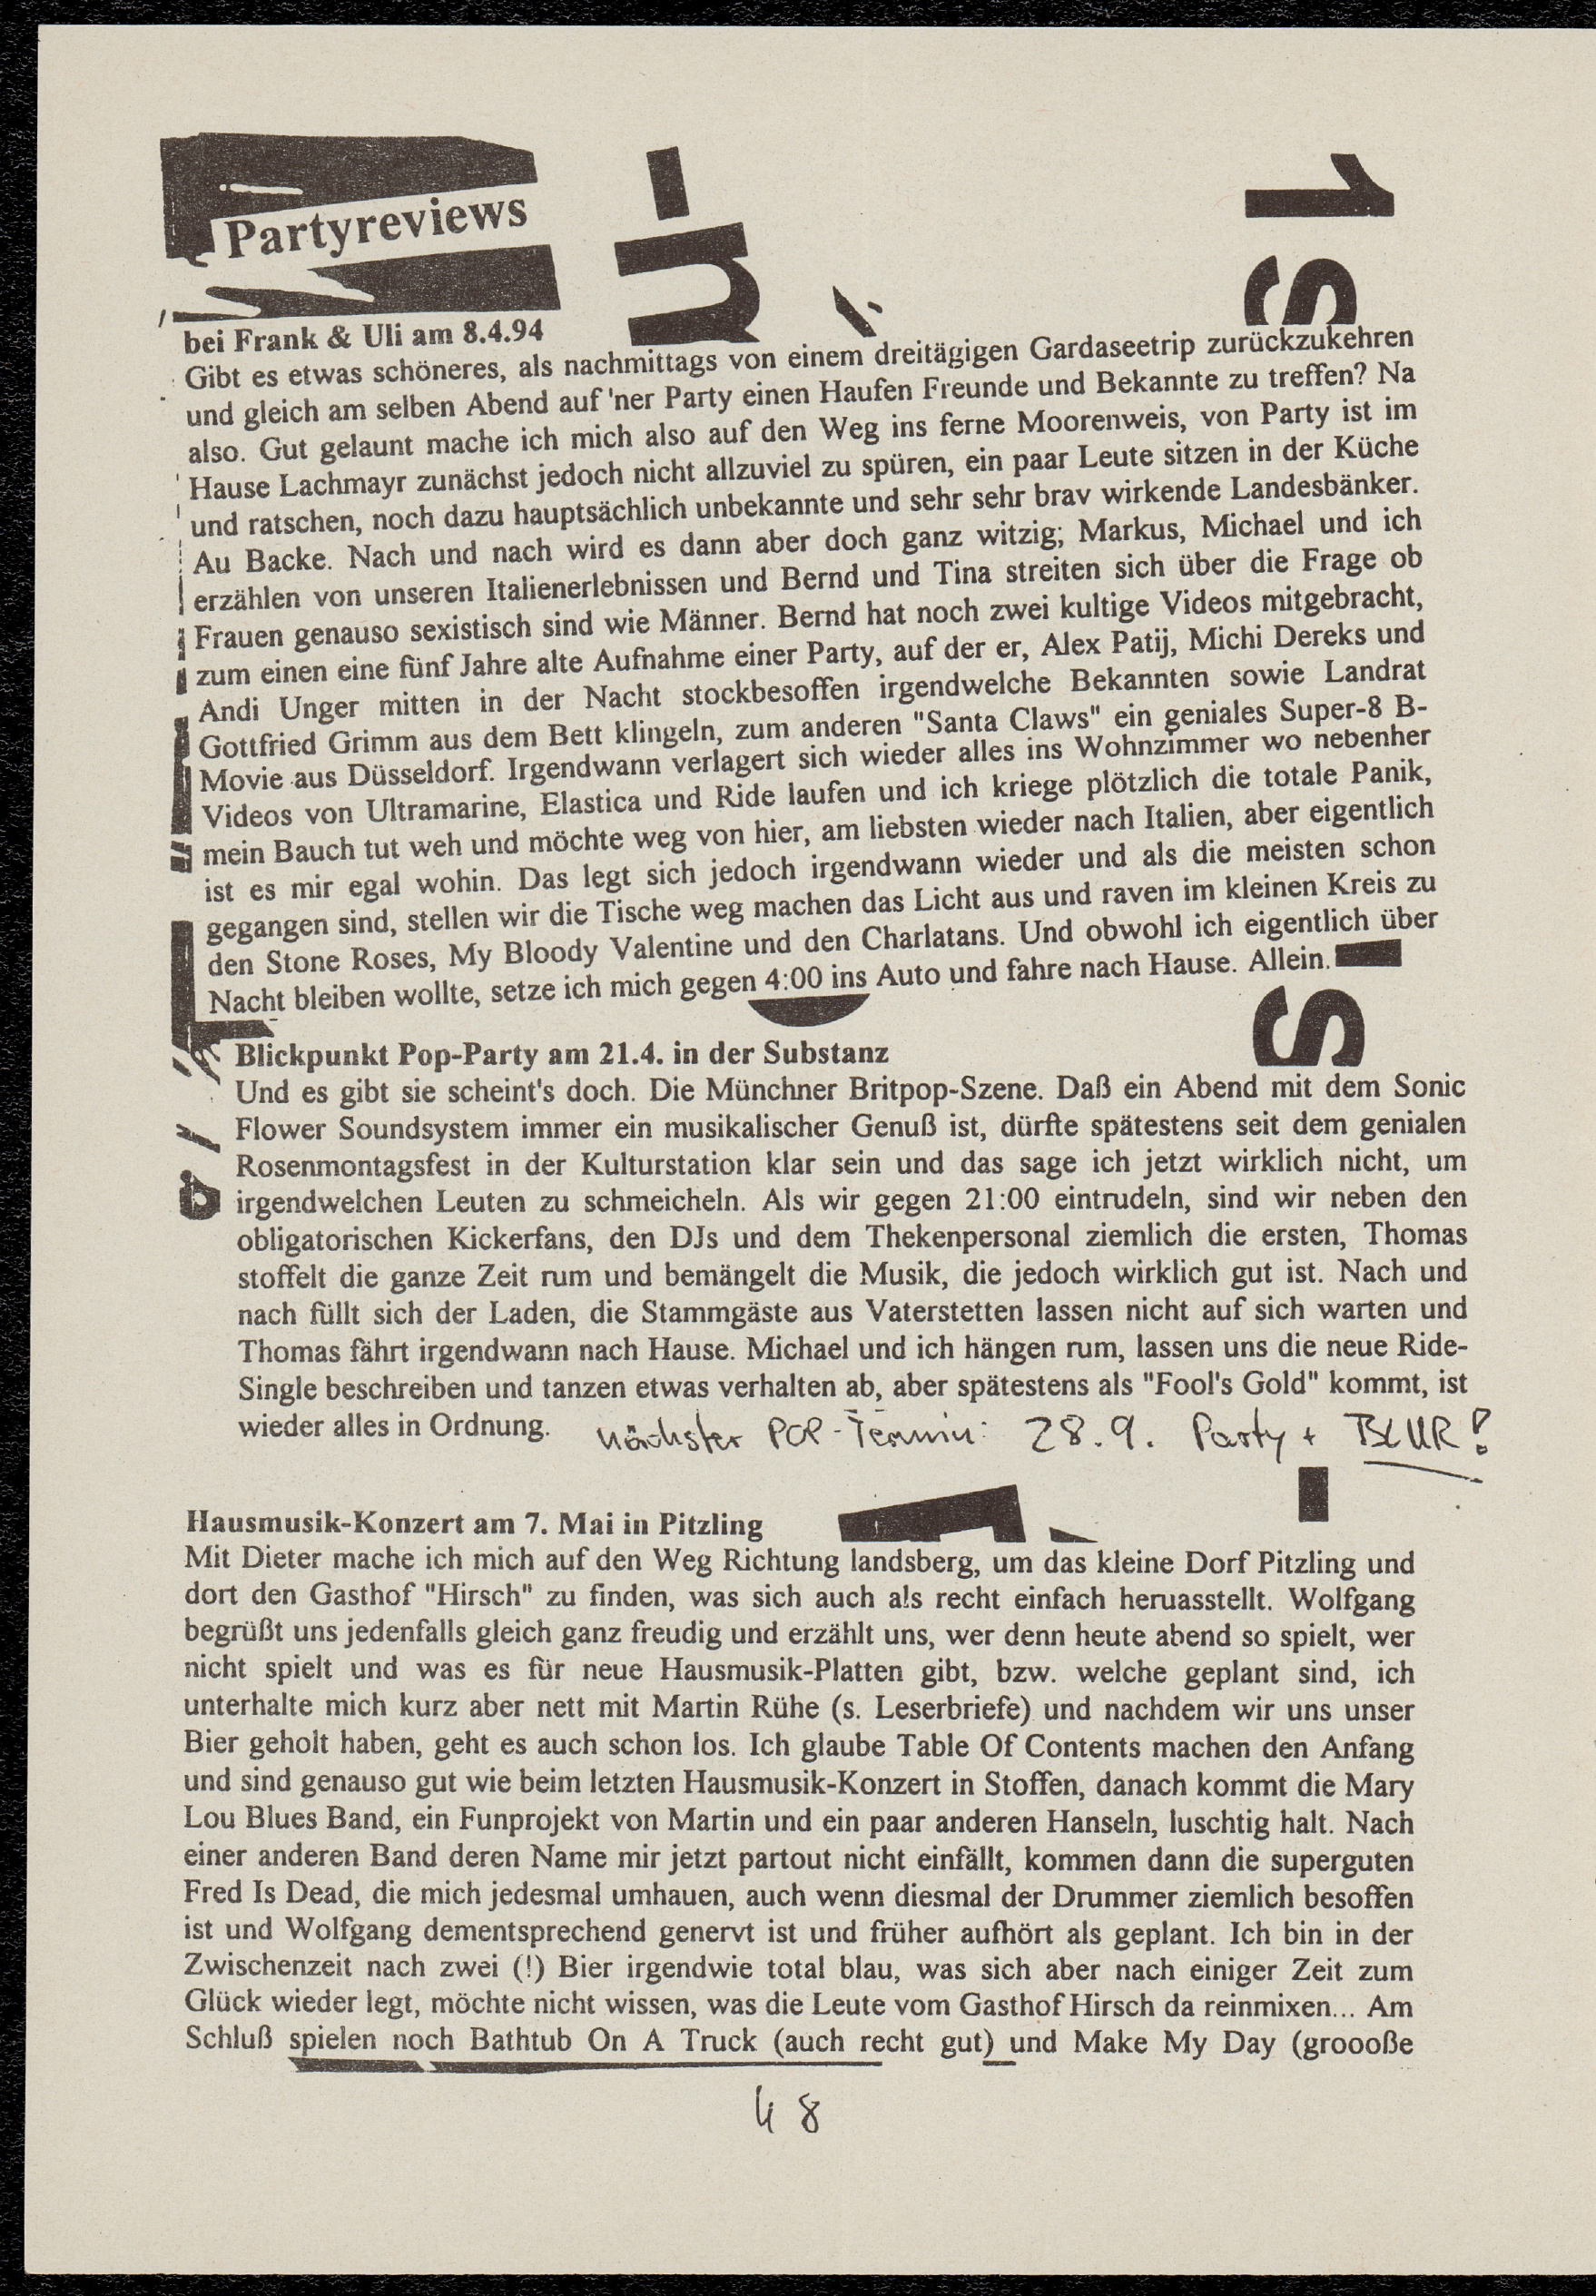 Partyreviews
bei Frank & Uli am 8.4.94
Gibt es etwas schöneres, als nachmittags von einem dreitägigen Gardaseetrip zurückzukehren
und gleich am selben Abend auf 'ner Party einen Haufen Freunde und Bekannte zu treffen? Na
also. Gut gelaunt mache ich mich also auf den Weg ins ferne Moorenweis, von Party ist im
Hause Lachmayr zunächst jedoch nicht allzuviel zu spüren, ein paar Leute sitzen in der Küche
und ratschen, noch dazu hauptsächlich unbekannte und sehr sehr brav wirkende Landesbänker.
Au Backe. Nach und nach wird es dann aber doch ganz witzig; Markus, Michael und ich
erzählen von unseren Italienerlebnissen und Bernd und Tina streiten sich über die Frage ob
Frauen genauso sexistisch sind wie Männer. Bernd hat noch zwei kultige Videos mitgebracht,
zum einen eine fünf Jahre alte Aufnahme einer Party, auf der er, Alex Patij, Michi Dereks und
Andi Unger mitten in der Nacht stockbesoffen irgendwelche Bekannten sowie Landrat
Gottfried Grimm aus dem Bett klingeln, zum anderen "Santa Claws" ein geniales Super-8 B-
Movie aus Düsseldorf. Irgendwann verlagert sich wieder alles ins Wohnzimmer wo nebenher
Videos von Ultramarine, Elastica und Ride laufen und ich kriege plötzlich die totale Panik,
mein Bauch tut weh und möchte weg von hier, am liebsten wieder nach Italien, aber eigentlich
ist es mir egal wohin. Das legt sich jedoch irgendwann wieder und als die meisten schon
gegangen sind, stellen wir die Tische weg machen das Licht aus und raven im kleinen Kreis zu
den Stone Roses, My Bloody Valentine und den Charlatans. Und obwohl ich eigentlich über
Nacht bleiben wollte, setze ich mich gegen 4:00 ins Auto und fahre nach Hause. Allein.
Blickpunkt Pop-Party am 21.4. in der Substanz
Und es gibt sie scheint's doch. Die Münchner Britpop-Szene. Daß ein Abend mit dem Sonic
Flower Soundsystem immer ein musikalischer Genuß ist, dürfte spätestens seit dem genialen
Rosenmontagsfest in der Kulturstation klar sein und das sage ich jetzt wirklich nicht, um
irgendwelchen Leuten zu schmeicheln. Als wir gegen 21:00 eintrudeln, sind wir neben den
obligatorischen Kickerfans, den DJs und dem Thekenpersonal ziemlich die ersten, Thomas
stoffelt die ganze Zeit rum und bemängelt die Musik, die jedoch wirklich gut ist. Nach und
nach füllt sich der Laden, die Stammgäste aus Vaterstetten lassen nicht auf sich warten und
Thomas fährt irgendwann nach Hause. Michael und ich hängen rum, lassen uns die neue Ride-
Single beschreiben und tanzen etwas verhalten ab, aber spätestens als "Fool's Gold" kommt, ist
wieder alles in Ordnung. nächster POP-Termin: 28.9. Party + BLUR!
Hausmusik-Konzert am 7. Mai in Pitzling
Mit Dieter mache ich mich auf den Weg Richtung landsberg, um das kleine Dorf Pitzling und
dort den Gasthof "Hirsch" zu finden, was sich auch als recht einfach heruasstellt. Wolfgang
begrüßt uns jedenfalls gleich ganz freudig und erzählt uns, wer denn heute abend so spielt, wer
nicht spielt und was es für neue Hausmusik-Platten gibt, bzw. welche geplant sind, ich
unterhalte mich kurz aber nett mit Martin Rühe (s. Leserbriefe) und nachdem wir uns unser
Bier geholt haben, geht es auch schon los. Ich glaube Table Of Contents machen den Anfang
und sind genauso gut wie beim letzten Hausmusik-Konzert in Stoffen, danach kommt die Mary
Lou Blues Band, ein Funprojekt von Martin und ein paar anderen Hanseln, luschtig halt. Nach
einer anderen Band deren Name mir jetzt partout nicht einfällt, kommen dann die superguten
Fred Is Dead, die mich jedesmal umhauen, auch wenn diesmal der Drummer ziemlich besoffen
ist und Wolfgang dementsprechend genervt ist und früher aufhört als geplant. Ich bin in der
Zwischenzeit nach zwei (!) Bier irgendwie total blau, was sich aber nach einiger Zeit zum
Glück wieder legt, möchte nicht wissen, was die Leute vom Gasthof Hirsch da reinmixen... Am
Schluß spielen noch Bathtub On A Truck (auch recht gut) und Make My Day (groooße
48